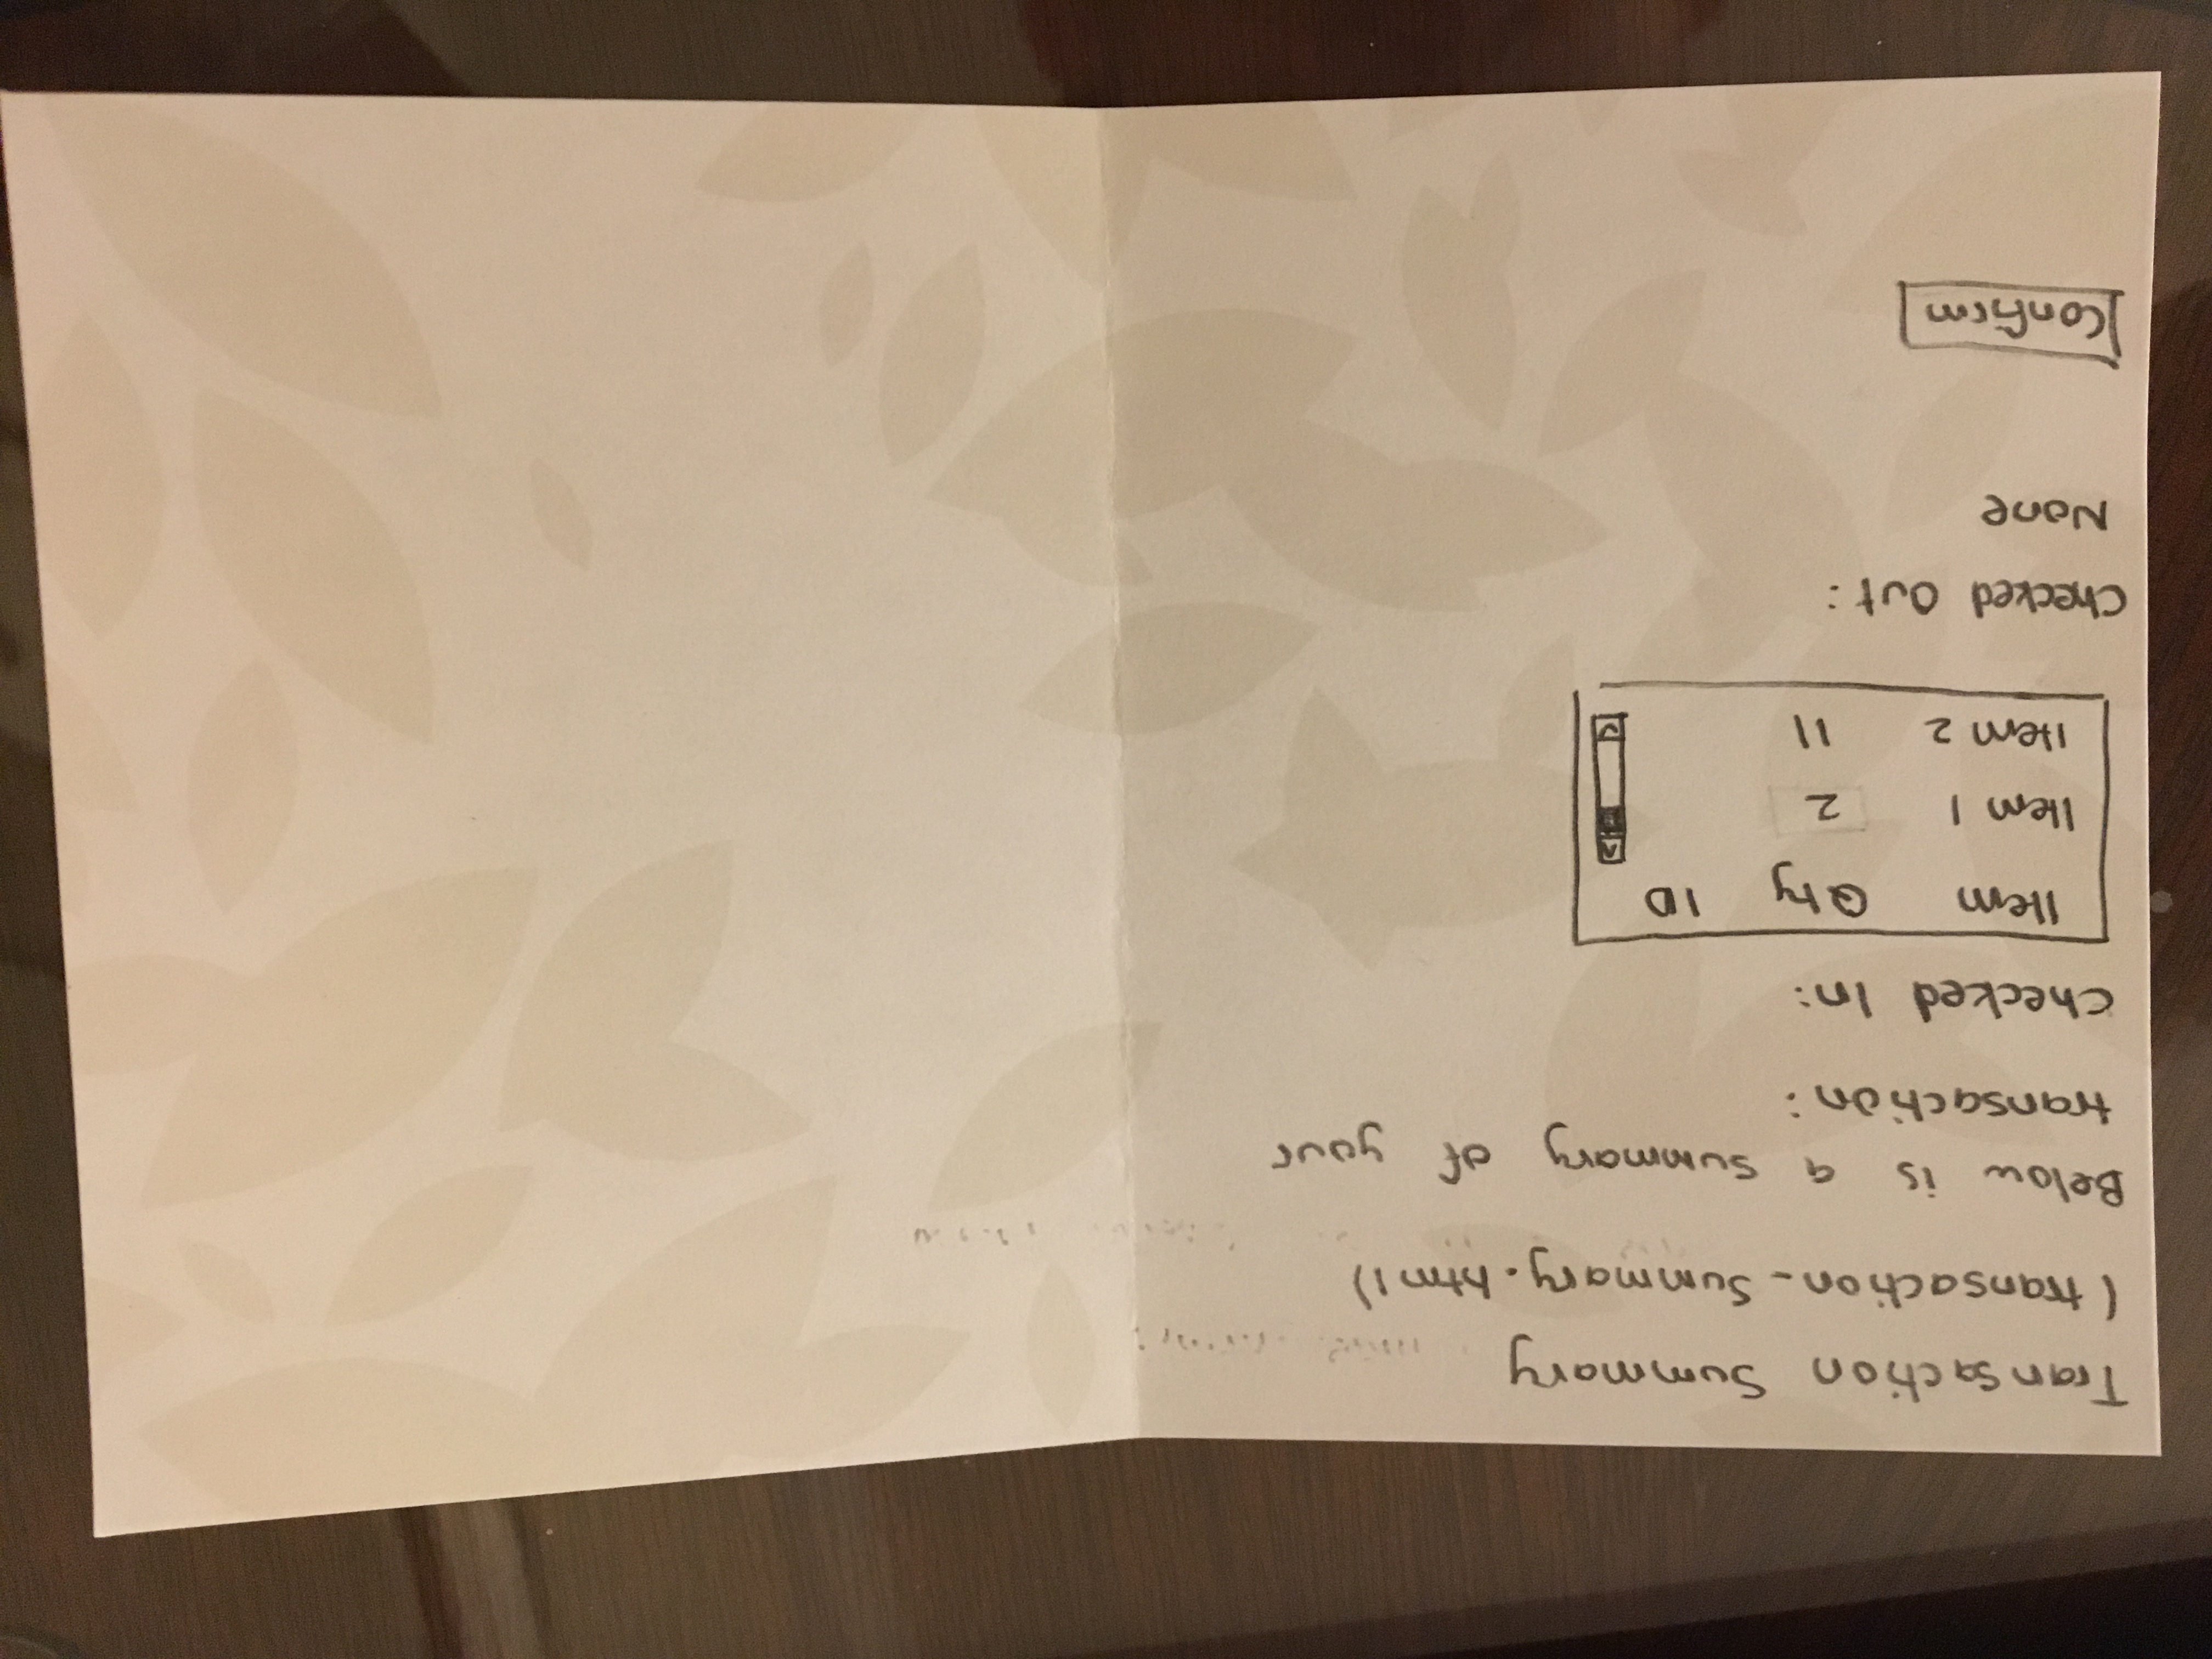 Transaction Summary
(transaction_summary.html)
Below is a summary of your
transaction:
Checked In:
Item Qty ID
Item 1 2
Item 2 11
Checked Out:
None
Confirm